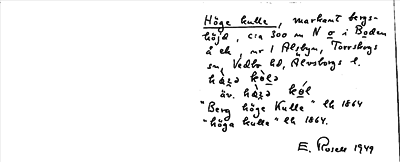 Höge kulle, markant bergs-
höjd, c:a 300 m N o i Boden
å ek, nr 1 Alsbyn, Torrskogs
sn, Vedbo hd, Älvsborgs l.
hö̀gə kòlə
äv. hö̀gə kól
"Berg höge Kulle" lk 1864
"höga kulle" lk 1864.
E. Rosell 1949